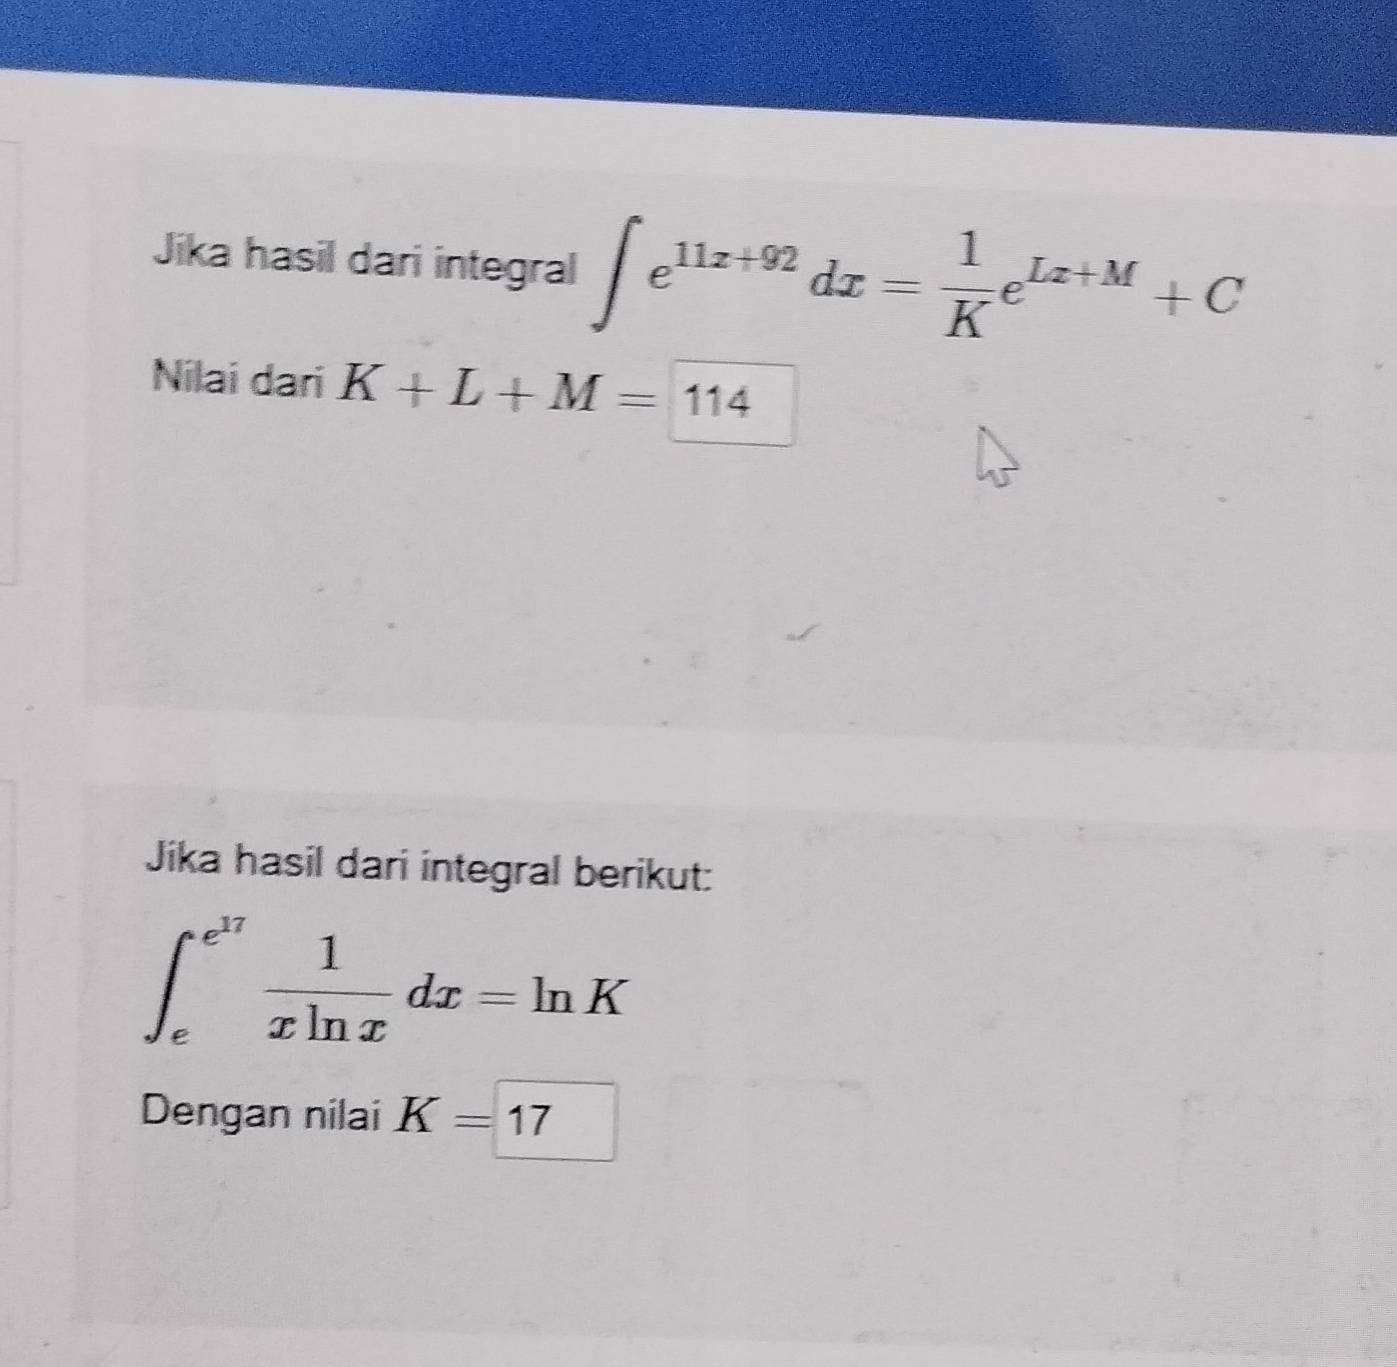 Jika hasil dari integral ∫ e^{11x+92} dx = \frac{1}{K} e^{Lx+M} + C
Nilai dari K + L + M = 114
Jika hasil dari integral berikut:
∫_{e}^{e^{17}} \frac{1}{x ln x} dx = ln K
Dengan nilai K = 17